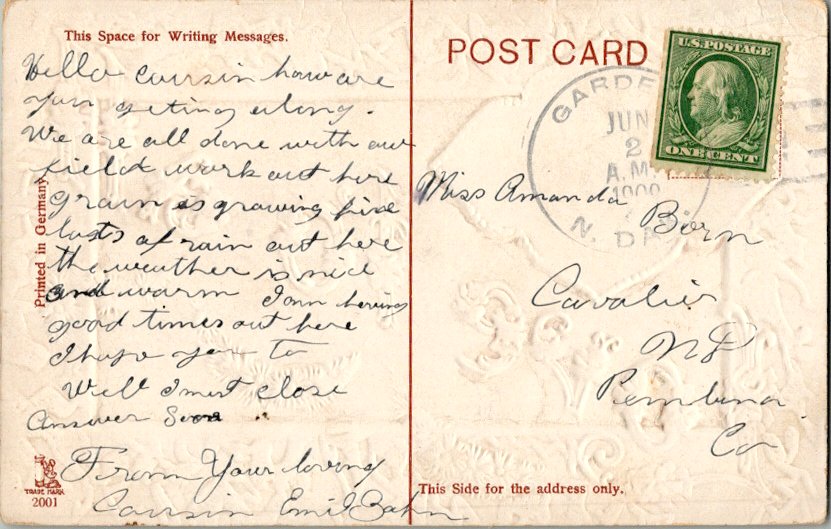 This Space for Writing Messages.
Hello Coursin how are
you geting along.
We are all done with our
field work out here
grain is growing fine
lots of rain out here
the weather is nice
and warm I am having
good times out here
I hope you to
Well I must close
Answer Soon
From Your loving
Coursin Emil Bahn
Printed in Germany
TRADE MARK
2001
POST CARD
U.S. POSTAGE
ONE CENT
GARDE
JUN
2
A.M.
1909
N. DA
Miss Amanda
Born
Cavalier
ND
Pembina
Co
This Side for the address only.